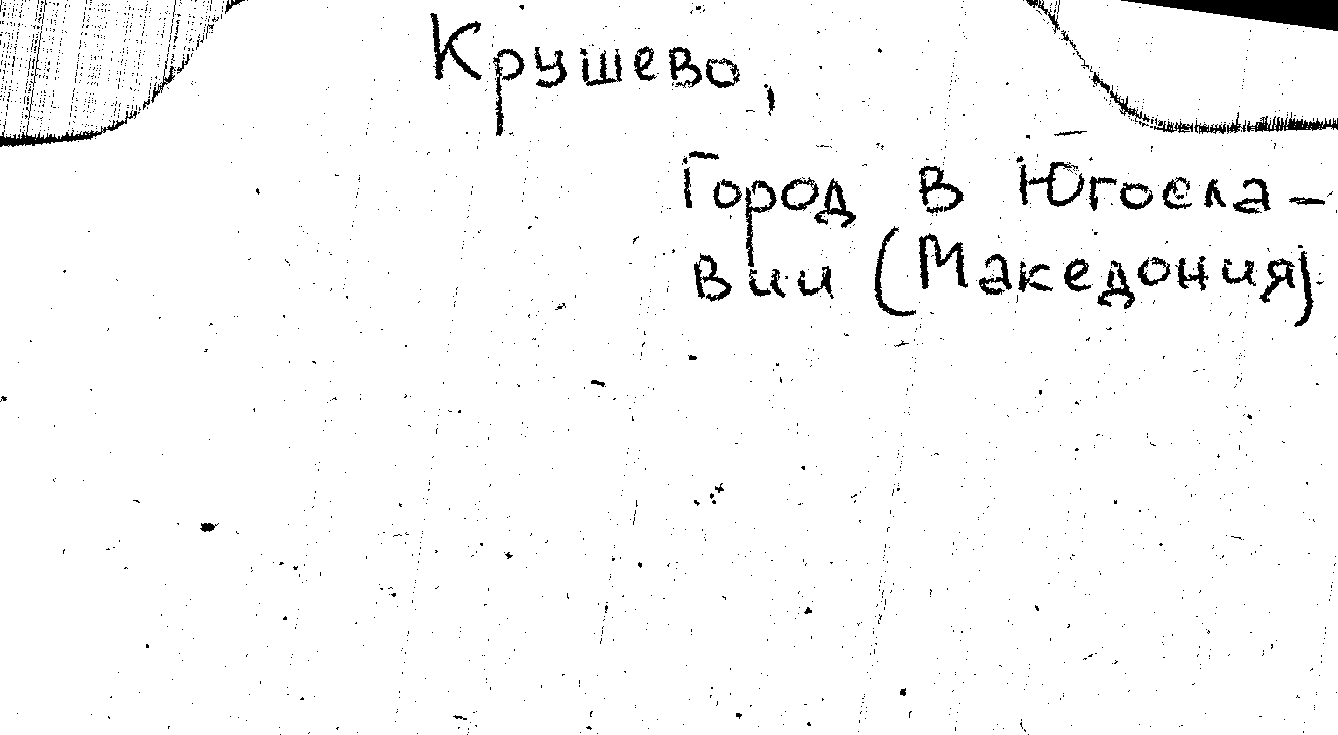 Крушево,
Город в Югосла-
вии (Македония)